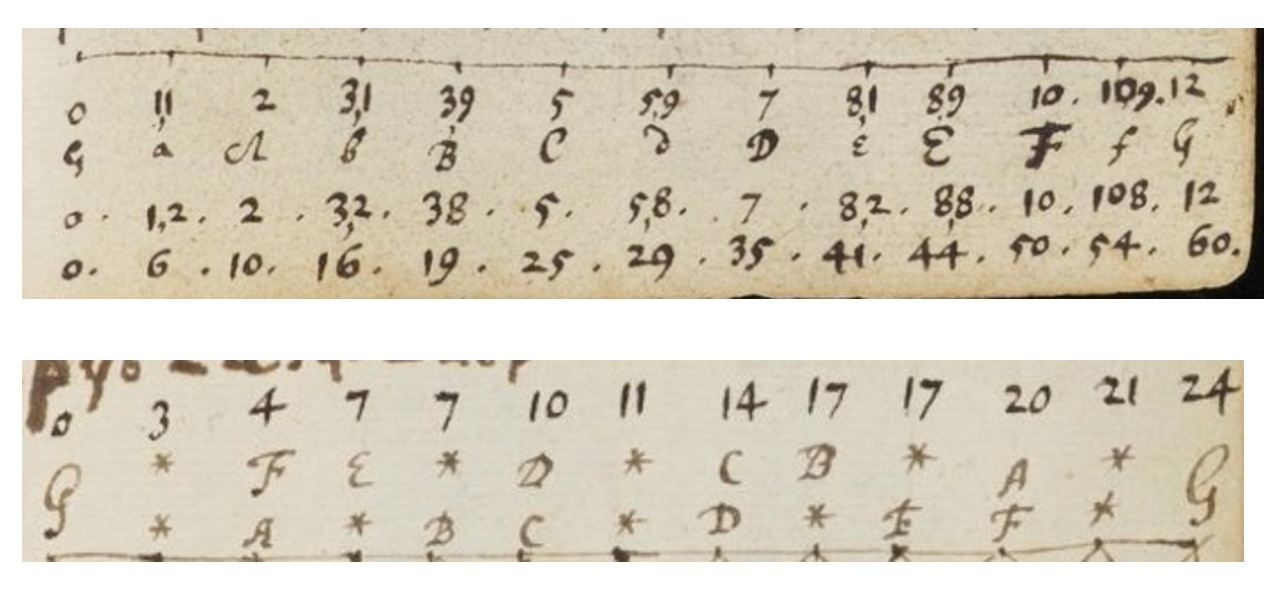 0 1,1 2 3,1 39 5 5,9 7 8,1 8,9 10. 109. 12
G a A b B C d D ε E F f G
0. 1,2. 2. 3,2. 38. 5. 5,8. 7. 8,2. 8,8. 10. 108. 12
0. 6. 10. 16. 19. 25. 29. 35. 41. 44. 50. 54. 60.
0 3 4 7 7 10 11 14 17 17 20 21 24
G * F E * D * C B * A * G
* A * B C * D * E F *